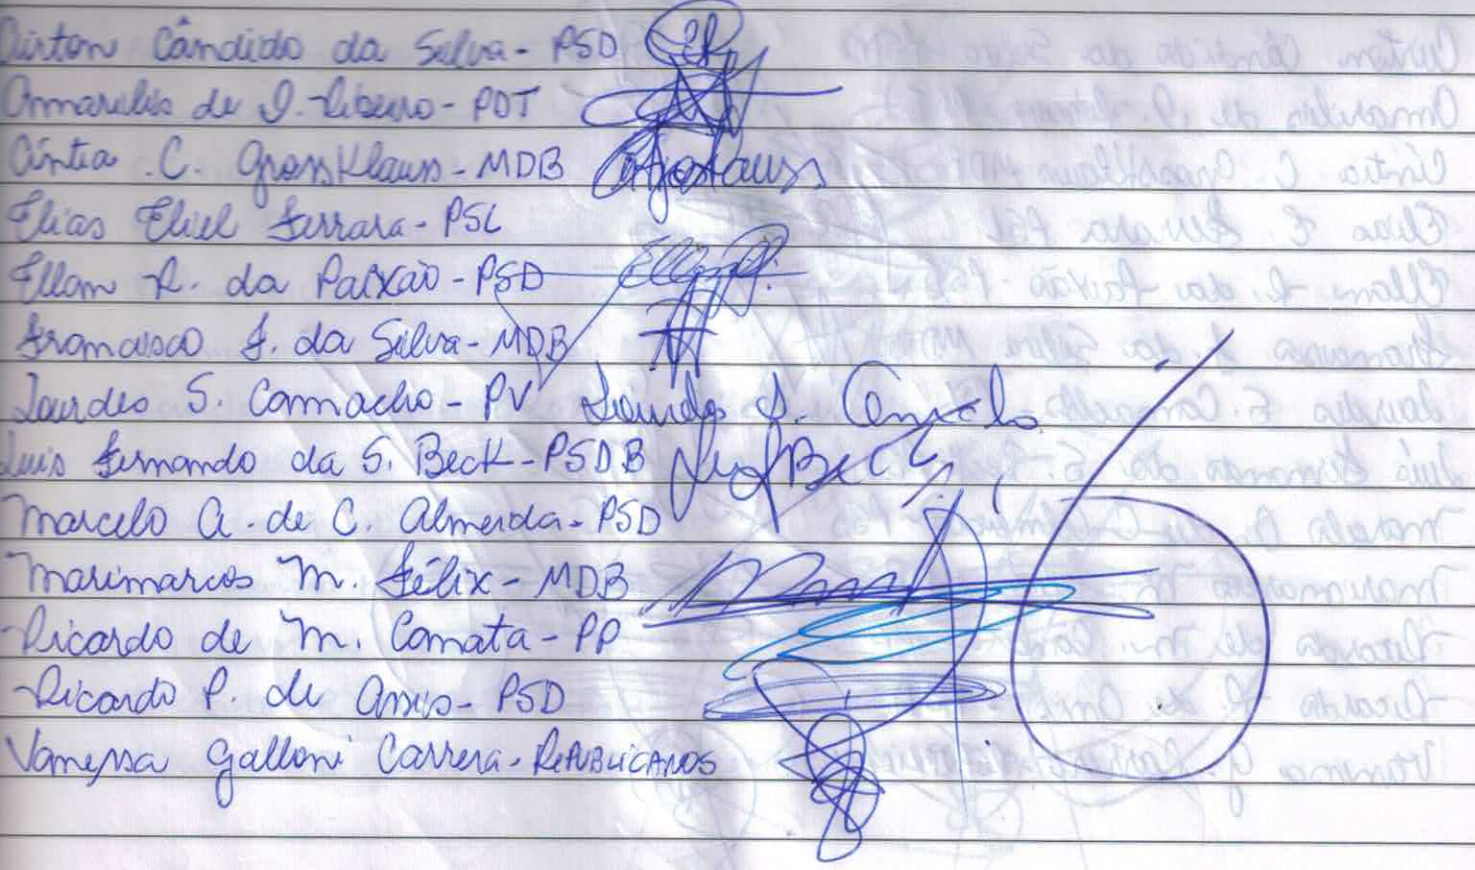 Airton Cândido da Silva - PSD
Amarilis de J. Ribeiro - PDT
Cíntia C. Grossklauss - MDB
Elias Eliel Ferrara - PSL
Ellan R. da Paixão - PSD
Francisco F. da Silva - MDB
Lourdes S. Camacho - PV
Luis Fernando da S. Beck - PSDB
Marcelo A. de C. Almeida - PSD
Marimarcos M. Félix - MDB
Ricardo de M. Camata - PP
Ricardo P. de Assis - PSD
Vanessa Galloni Carrera - REPUBLICANOS